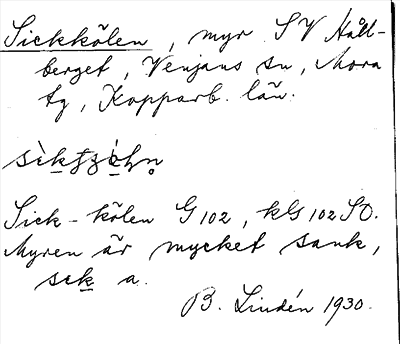 Sickkölen, myr SV Håll-
berget, Venjans sn, Mora
tg, Kopparb. län.
Sick-kölen G 102, kls 102 SO.
Myren är mycket sank,
sek a.
B. Lindén 1930.